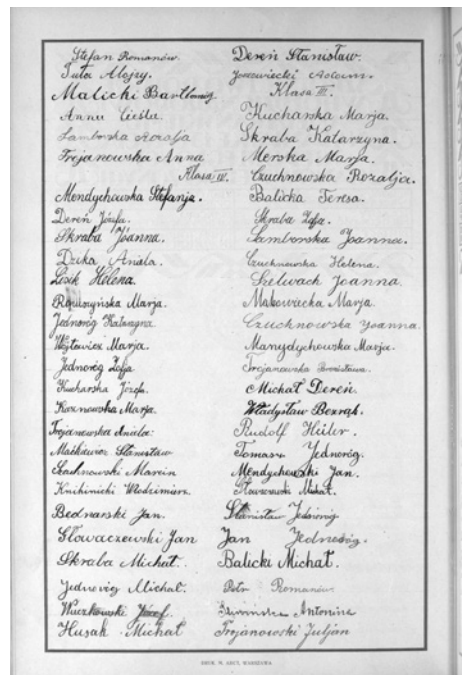 Stefan Romanów.
Tuła Alojzy.
Malicki Bartłomiej
Anna Cieśla.
Lamborska Rozalja
Trojanowska Anna
Klasa IV.
Mendychowska Stefanja.
Dereń Józefa.
Skraba Joanna.
Dzika Aniela.
Lesik Helena.
Ropuszyńska Marja.
Jednoróg Katarzyna.
Wojtowicz Marja.
Jednoróg Zofja
Kucharska Józefa.
Karnowska Marja.
Trojanowska Aniela.
Maćkiewicz Stanisław.
Czuchnowski Marcin
Knihinicki Włodzimierz.
Bednarski Jan.
Głowaczewski Jan
Skraba Michał.
Jednoróg Michał.
Wuczkowski Józef.
Husak Michał
Dereń Stanisław.
Adam.
Klasa III.
Kucharska Marja.
Skraba Katarzyna.
Merska Marja.
Czuchnowska Rozalja.
Balicka Teresa.
Skraba Zofja.
Lamborska Joanna.
Czuchnowska Helena.
Szelwach Joanna.
Makowiecka Marja.
Czuchnowska Joanna.
Manydychowska Marja.
Trojanowska Bronisława.
Michał Dereń.
Władysław Bezrąk.
Rudolf Hüler.
Tomasz Jednoróg.
Mendychowski Jan.
Michał.
Stanisław Jednoróg
Jan Jednoróg.
Balicki Michał.
Piotr Romanów.
Antonina
Trojanowski Juljan
DRUK. W. ARCT, WARSZAWA